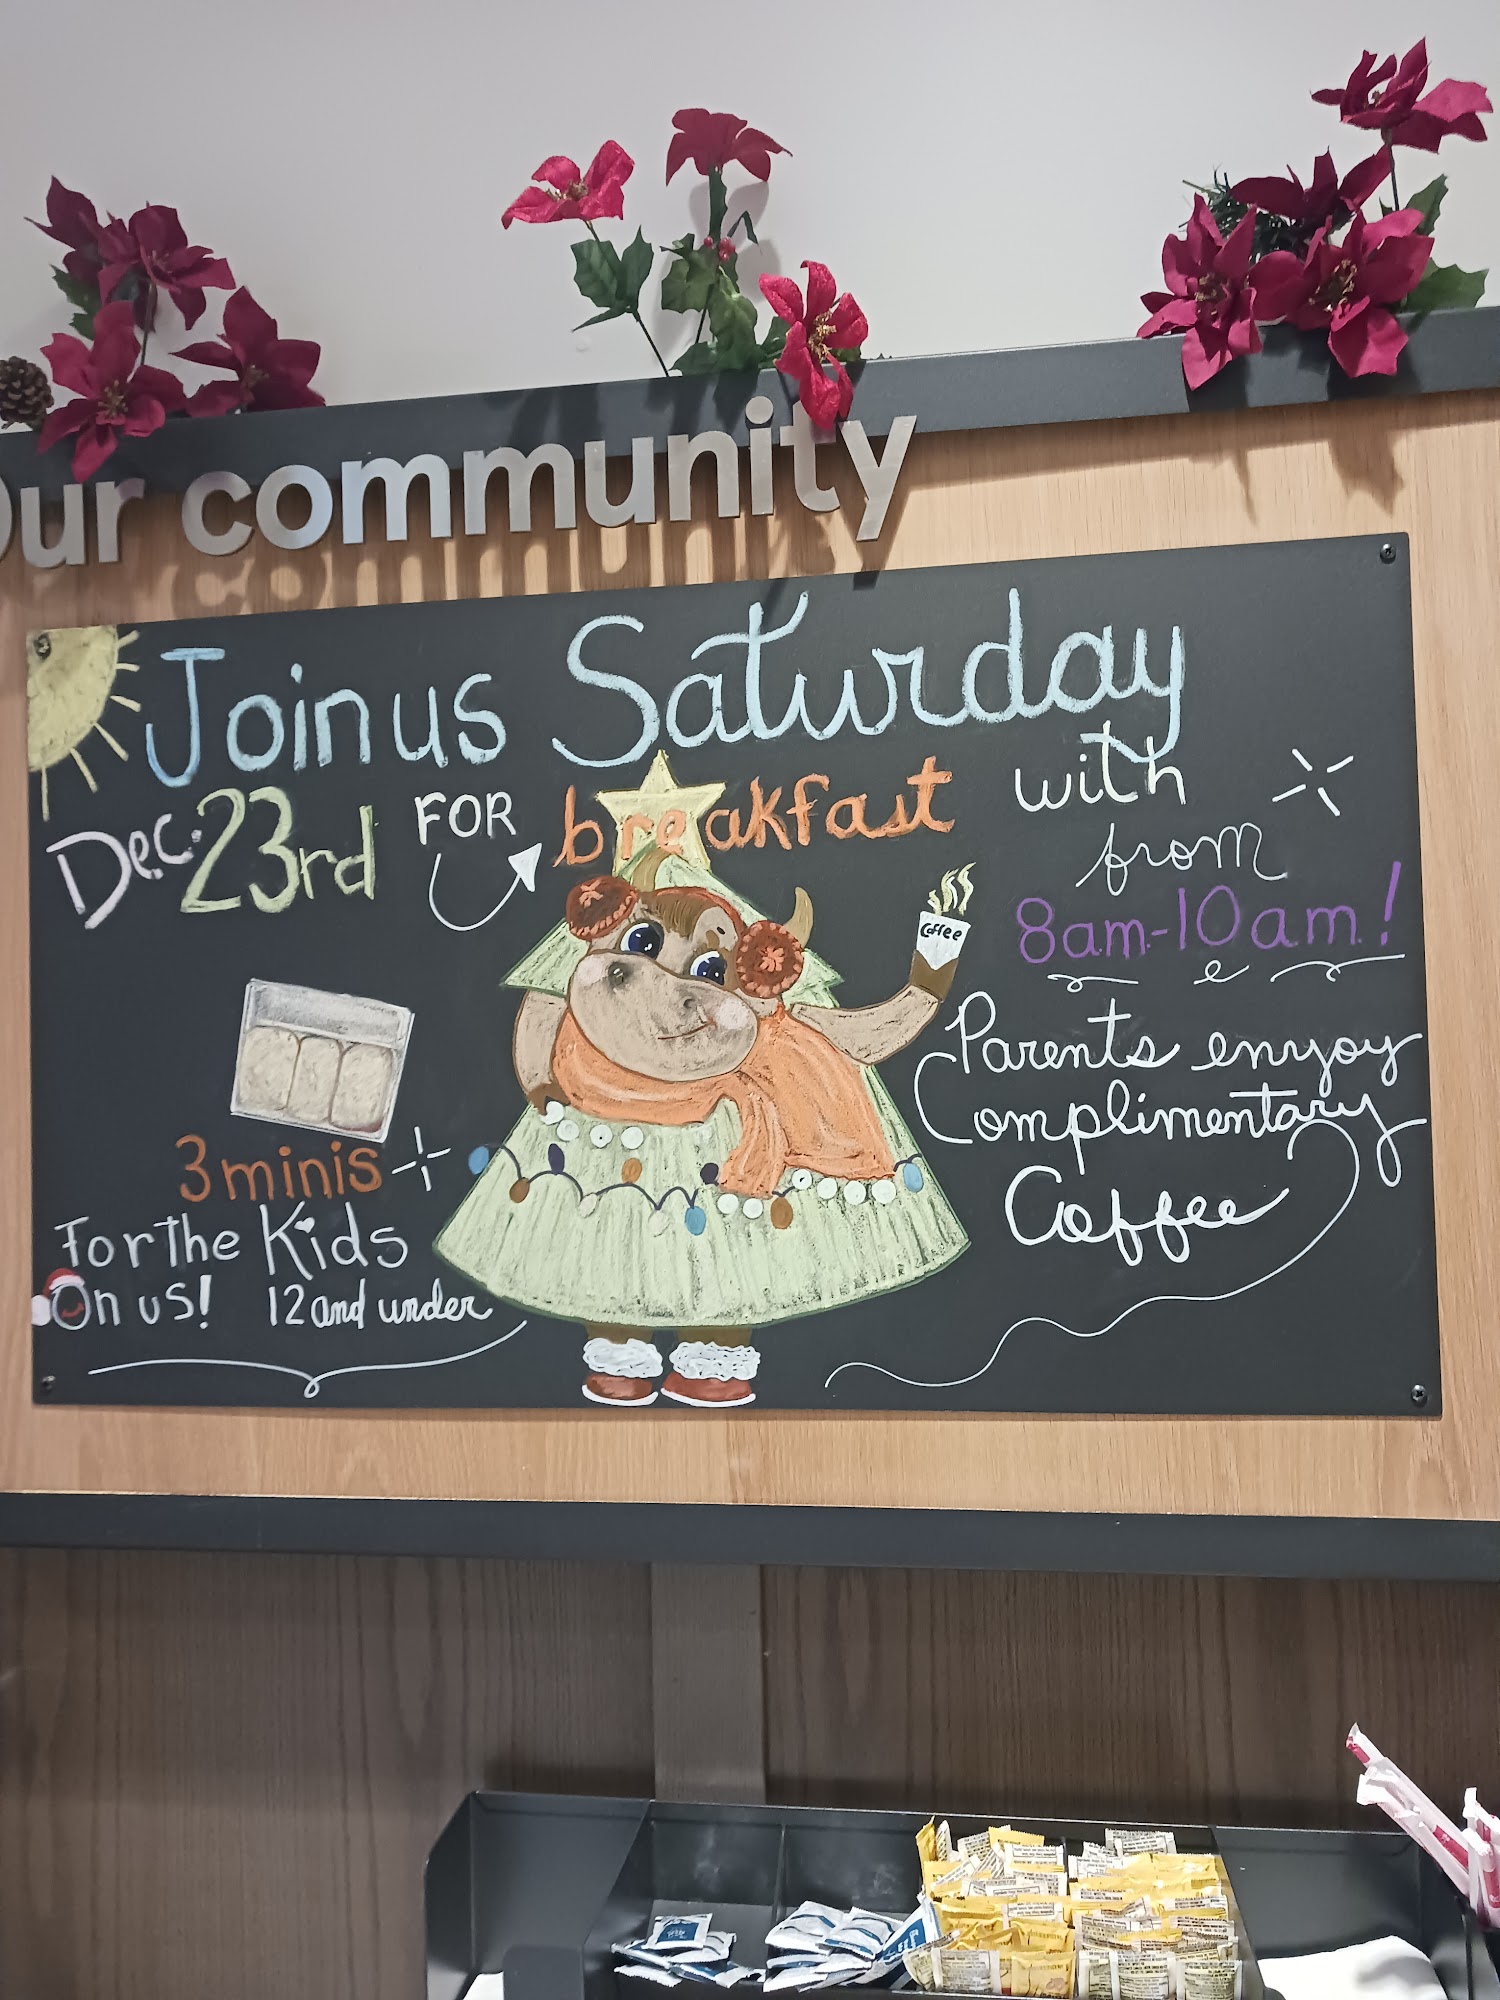 Our community
Join us Saturday
Dec. 23rd FOR breakfast with
from
8am-10am!
Parents enyoy
Complimentary
Coffee
Coffee
3 minis
For The Kids
On us! 12 and under